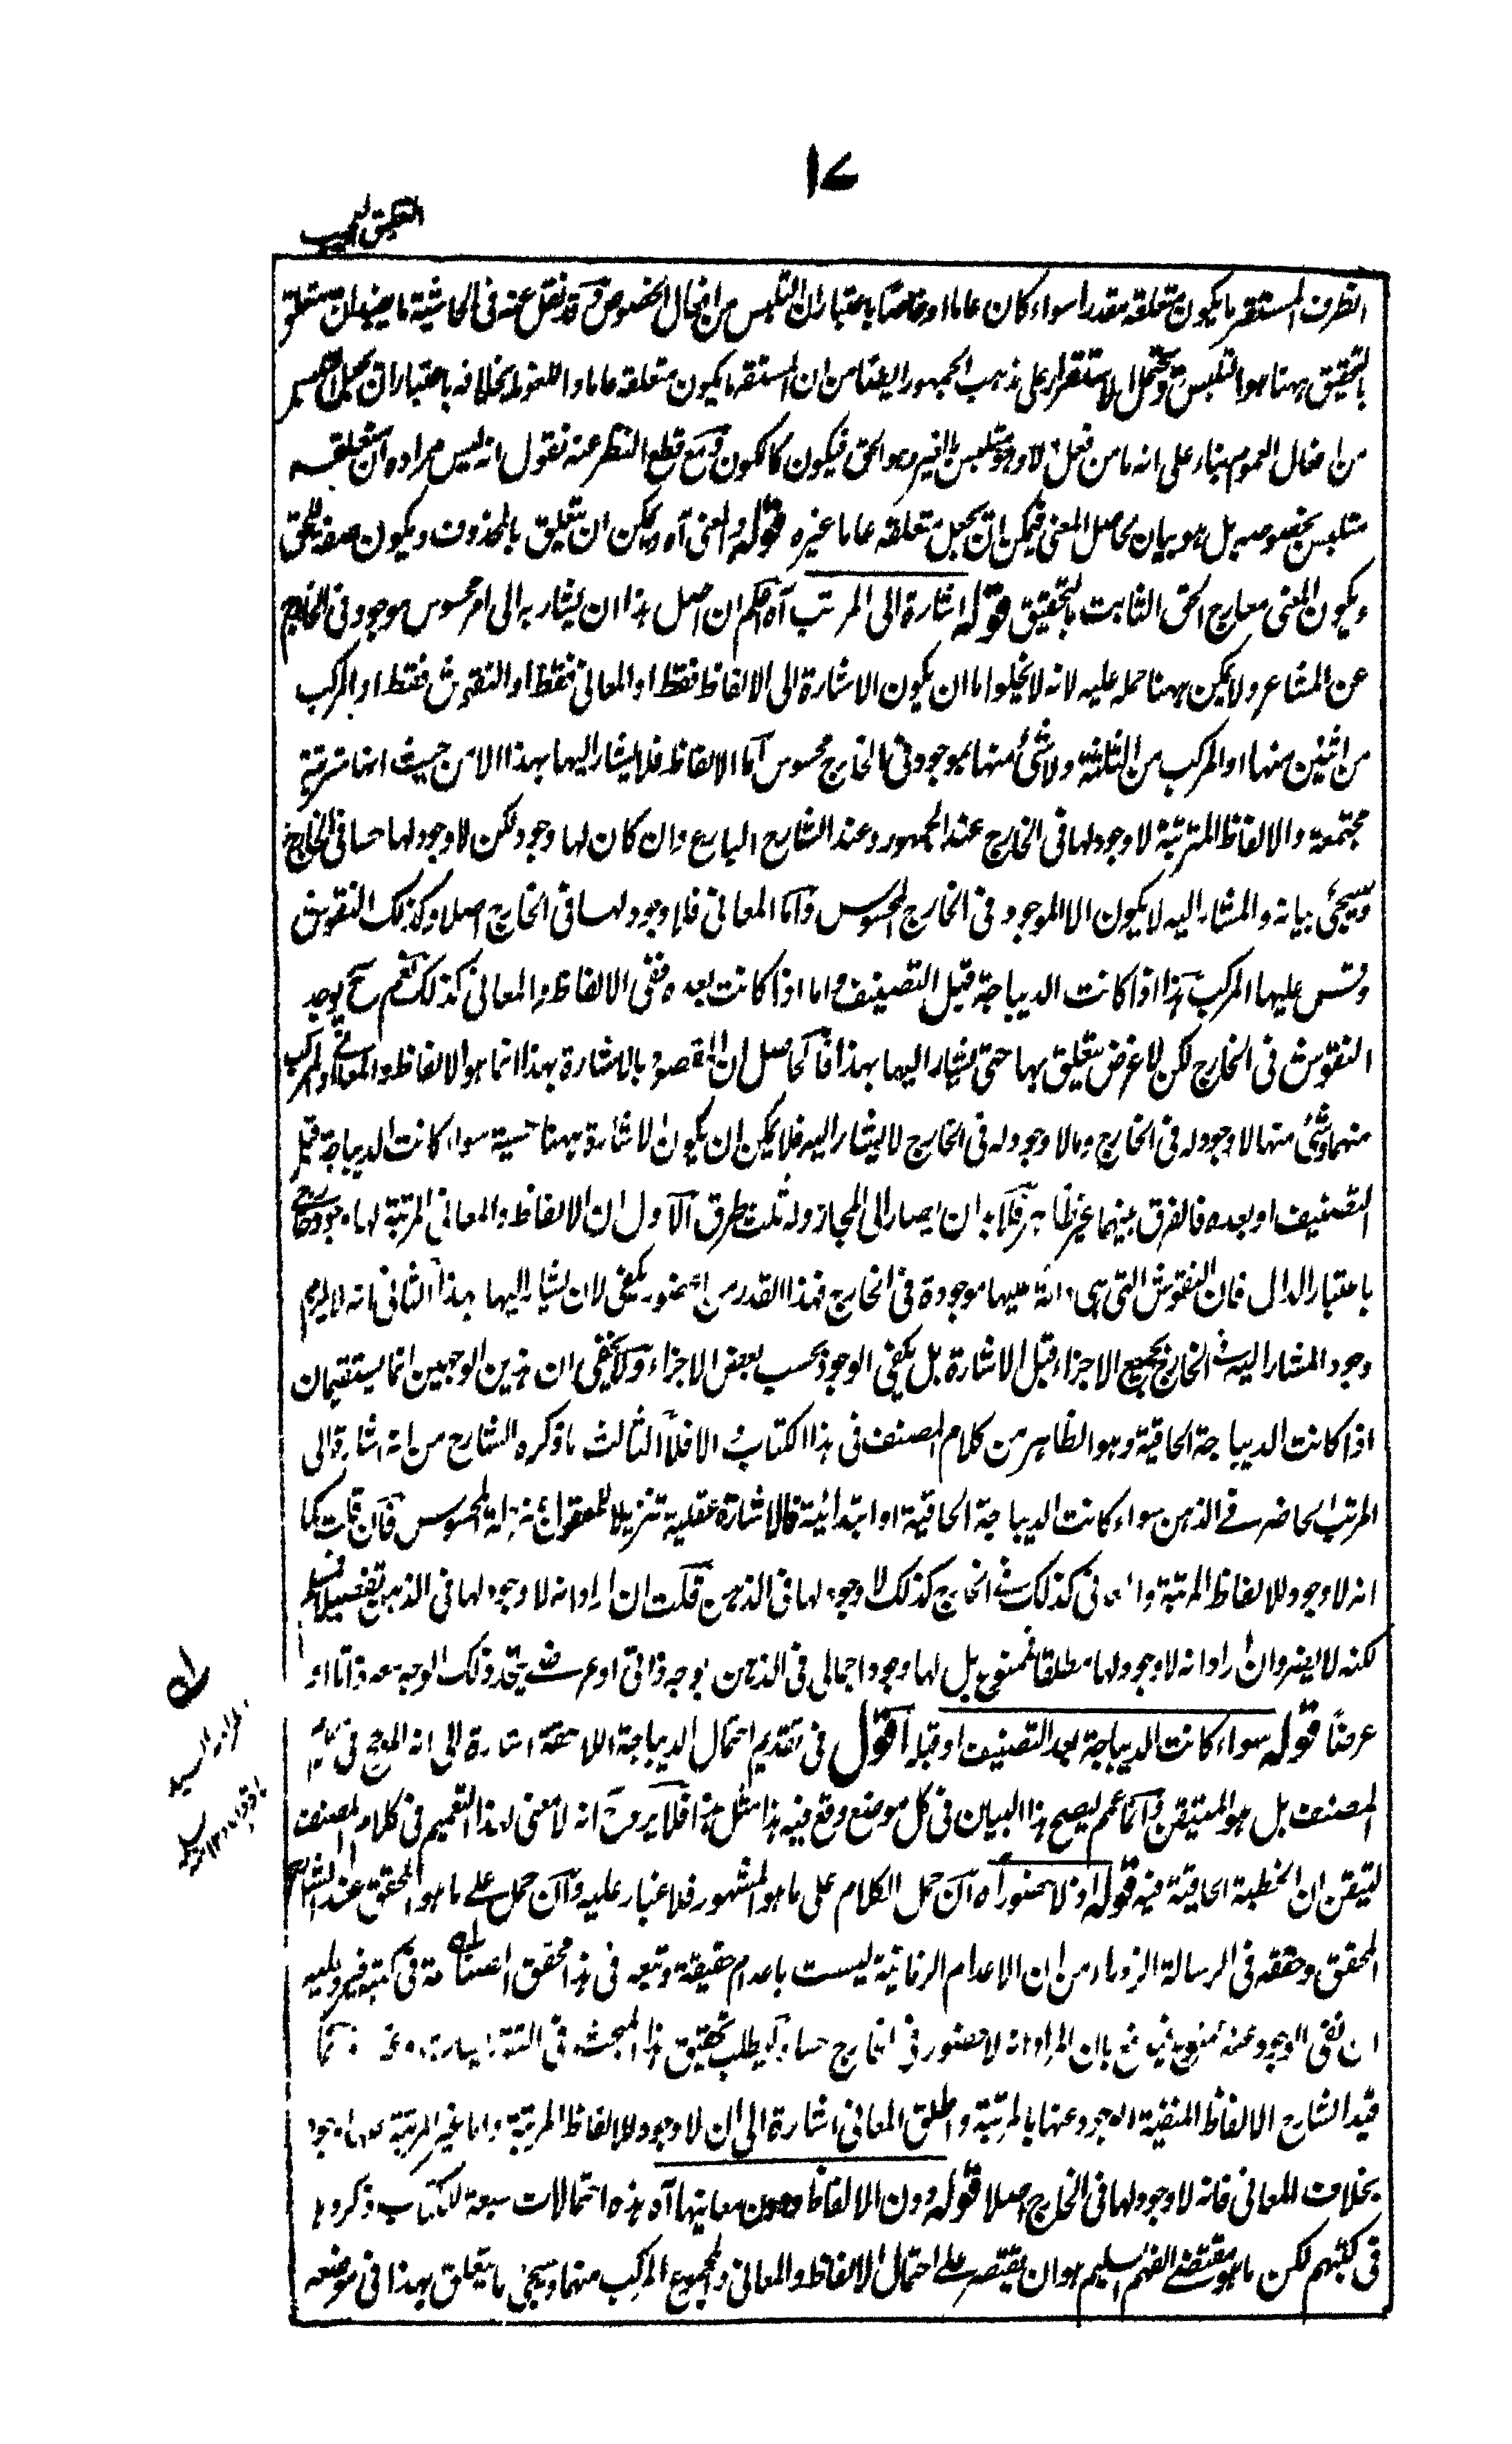 ١٧
الظرف المستقر ما يكون متعلقه مقدرا سواء كان عاما او خاصا باعتبار ان التلبس من افعال الخصوص وقد نقل عنه فى الحاشية ما يفيد ان متعلق
بالتحقيق ههنا هو التلبس ويحتمل الاستقرار على مذهب الجمهور ايضا من ان المستقر ما يكون متعلقه عاما واللغو بخلافه باعتبار ان جعل التلبس
من افعال العموم بناء على انه ما من فعل الا وهو متلبس بالغير وهو الحق فيكون كالكون ومع قطع النظر عنه نقول انه ليس مراده ان متعلقه
متلبس بخصوصه بل هو بيان لحاصل المعنى فيمكن بان يجعل متعلقه عاما غيره قوله والمعنى آه ويمكن ان يتعلق بالمحذوف ويكون صفة للحق
ويكون المعنى معارج الحق الثابت بالتحقيق قوله اشارة الى المرتب آه اعلم ان اصل هذا ان يشار به الى امر محسوس موجود فى الخارج
عن المشاعر ولا يمكن ههنا حمله عليه لانه لا يخلوا ما ان يكون الاشارة الى الالفاظ فقط او المعانى فقط او النقوش فقط او المركب
من اثنين منها او المركب من الثلثة ولا شئ منها بموجود فى الخارج محسوس اما الالفاظ فلا يشار اليها بهذا الا من حيث انها مترتبة
مجتمعة والالفاظ المترتبة لا وجود لها فى الخارج عند الجمهور وعند الشارع البارع وان كان لها وجود لكن لا وجود لها حسا فى الخارج
وسيجئ بيانه والمشار اليه لا يكون الا الموجود فى الخارج المحسوس واما المعانى فلا وجود لها فى الخارج اصلا وكذلك النقوش
وقس عليها المركب هذا اذا كانت الديباجة قبل التصنيف واما اذا كانت بعده ففى الالفاظ والمعانى كذلك نعم ح يوجد
النقوش فى الخارج لكن لا غرض يتعلق بها حتى يشار اليها بهذا فالحاصل ان المقصود بالاشارة بهذا انما هو الالفاظ والمعانى والمركب
منهما وشئ منها لا وجود له فى الخارج وما لا وجود له فى الخارج لا يشار اليه فلا يمكن ان يكون الاشارة ههنا حسية سواء كانت الديباجة قبل
التصنيف او بعده فالفرق بينهما غير ظاهر فلا بد ان يصار الى المجاز وله ثلث طرق الاول ان الالفاظ والمعانى المرتبة لها وجود خارجى
باعتبار الدال فان النقوش التى هى دالة عليها موجودة فى الخارج فهذا القدر من الحضور يكفى لان يشار اليها بهذا الثانى انه لا يلزم
وجود المشار اليه فى الخارج بجميع الاجزاء قبل الاشارة بل يكفى الوجود بحسب بعض الاجزاء ولا يخفى ان هذين الوجهين انما يستقيمان
اذا كانت الديباجة الحاقية وهو الظاهر من كلام المصنف فى هذا الكتاب والا فلا الثالث ما ذكره الشارح من انه اشارة الى
المرتب الحاضر فى الذهن سواء كانت الديباجة الحاقية او ابتدائية فالاشارة عقلية تنزيلا للمعقول منزلة المحسوس فان قلت كما
انه لا وجود للالفاظ المرتبة والمعانى كذلك فى الخارج كذلك لا وجود لها فى الذهن قلت ان اراد انه لا وجود لها فى الذهن تفصيلا فمسلم
لكنه لا يضر وان اراد انه لا وجود لها مطلقا فممنوع بل لها وجود اجمالى فى الذهن بوجه ذاتى او عرضى يتحد ذلك الوجه معه ذاتا او
عرضا قوله سواء كانت الديباجة بعد التصنيف او قبله اقول فى تقديم احتمال الديباجة الاحقة اشارة الى انه الراجح فى كلام
المصنف بل هو المتيقن وانما عمم ليصح هذا البيان فى كل موضع وقع فيه هذا مثل هذا فلا يرد ان انه لا معنى لهذا التعميم فى كلام المصنف
لتيقن ان الخطبة الحاقية فيه قوله اذ لا حضور آه ان حمل الكلام على ما هو المشهور فلا غبار عليه وان حمل على ما هو المحقق عند الشارح
المحقق وحققه فى الرسالة الزوراء من ان الاعدام الزمانية ليست باعدام حقيقة وتبعه فى هذا محقق الصناعة فى كتبه فيرد عليه
ان نفى الوجود عنه ممنوع بان المراد انه لا حضور فى الخارج حسا يطلب تحقيق هذا المبحث فى
قيد الشارح الالفاظ المنفية الوجود عنها بالمرتبة واطلق المعانى اشارة الى ان لا وجود للالفاظ المرتبة واما غير المرتبة فلها وجود
بخلاف المعانى فانه لا وجود لها فى الخارج اصلا قوله دون الالفاظ ودون معانيها آه هذه احتمالات سبعة للكتاب ذكروها
فى كتبهم لكن ما هو مقتضى الفهم السليم هو ان يقتصر على احتمال الالفاظ والمعانى والمجموع المركب منهما وسيجئ ما يتعلق بهذا فى موضعه